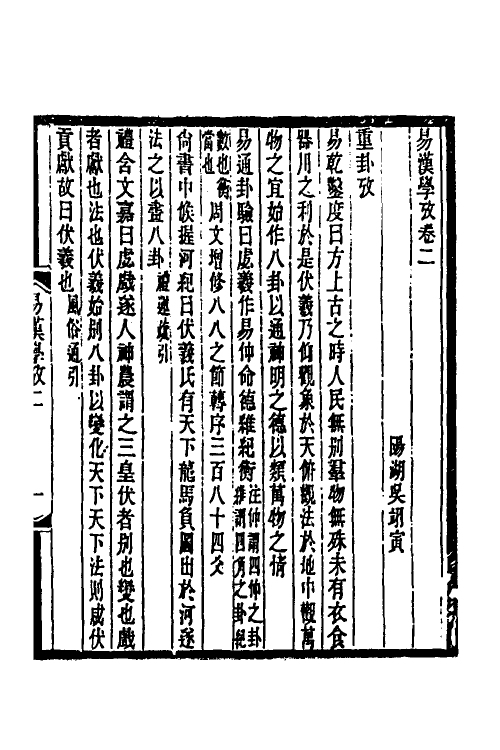 易漢學攷卷二
陽湖吳翊寅
重卦攷
易乾鑿度曰方上古之時人民無別羣物無殊未有衣食
器用之利於是伏羲乃仰觀象於天俯觀法於地中觀萬
物之宜始作八卦以通神明之德以類萬物之情
易通卦驗曰虙羲作易仲命德維紀衡注仲謂四仲之卦維謂四角之卦紀
數也衡當也周文增修八八之節轉序三百八十四爻
尙書中候握河紀曰伏羲氏有天下龍馬負圖出於河遂
法之以畫八卦禮運疏引
禮含文嘉曰虙戲遂人神農謂之三皇伏者別也變也戲
者獻也法也伏羲始別八卦以變化天下天下法則咸伏
貢獻故曰伏羲也風俗通引
易漢學攷二
一